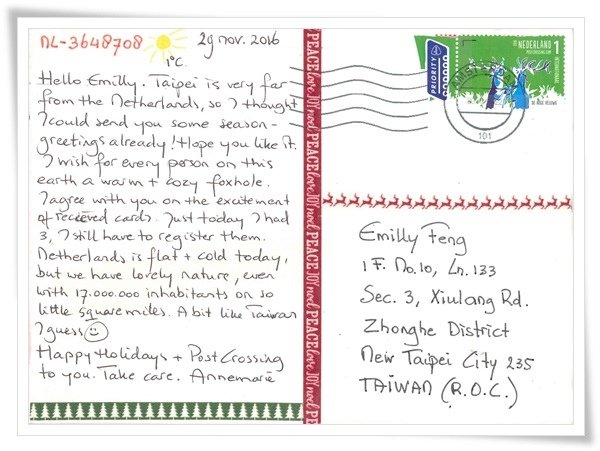 NL-3648708
29 nov. 2016
1°C.
Hello Emilly. Taipei is very far
from the Netherlands, so I thought
I could send you some season-
greetings already! Hope you like it.
I wish for every person on this
earth a warm + cozy foxhole.
I agree with you on the excitement
of recieved cards. Just today I had
3, I still have to register them.
Netherlands is flat + cold today,
but we have lovely nature, even
with 17.000.000 inhabitants on so
little square miles. A bit like Taiwan
I guess
Happy Holidays + PostCrossing
to you. Take care. Annemarie
PEACE love JOY noel PEACE love JOY noel PEACE love JOY noel PEACE love JOY noel PEACE
PRIORITY
NEDERLAND
1
101
Emilly Feng
1 F. No.10, Ln.133
Sec. 3, Xiulang Rd.
Zhonghe District
New Taipei City 235
TAIWAN (R.O.C.)